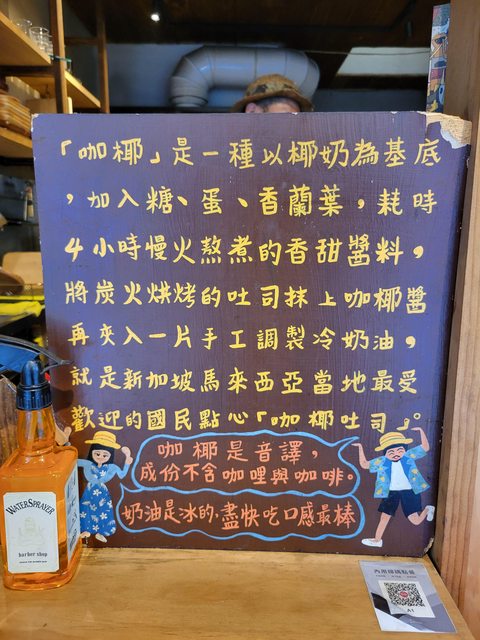 「咖椰」是一種以椰奶為基底
，加入糖、蛋、香蘭葉，耗時
4小時慢火熬煮的香甜醬料，
將炭火烘烤的吐司抹上咖椰醬
再夾入一片手工調製冷奶油，
就是新加坡馬來西亞當地最受
歡迎的國民點心「咖椰吐司」。
咖椰是音譯，
成份不含咖哩與咖啡。
奶油是冰的，盡快吃口感最棒
WATERSPRAYER
barber shop
內用掃碼點餐
A1